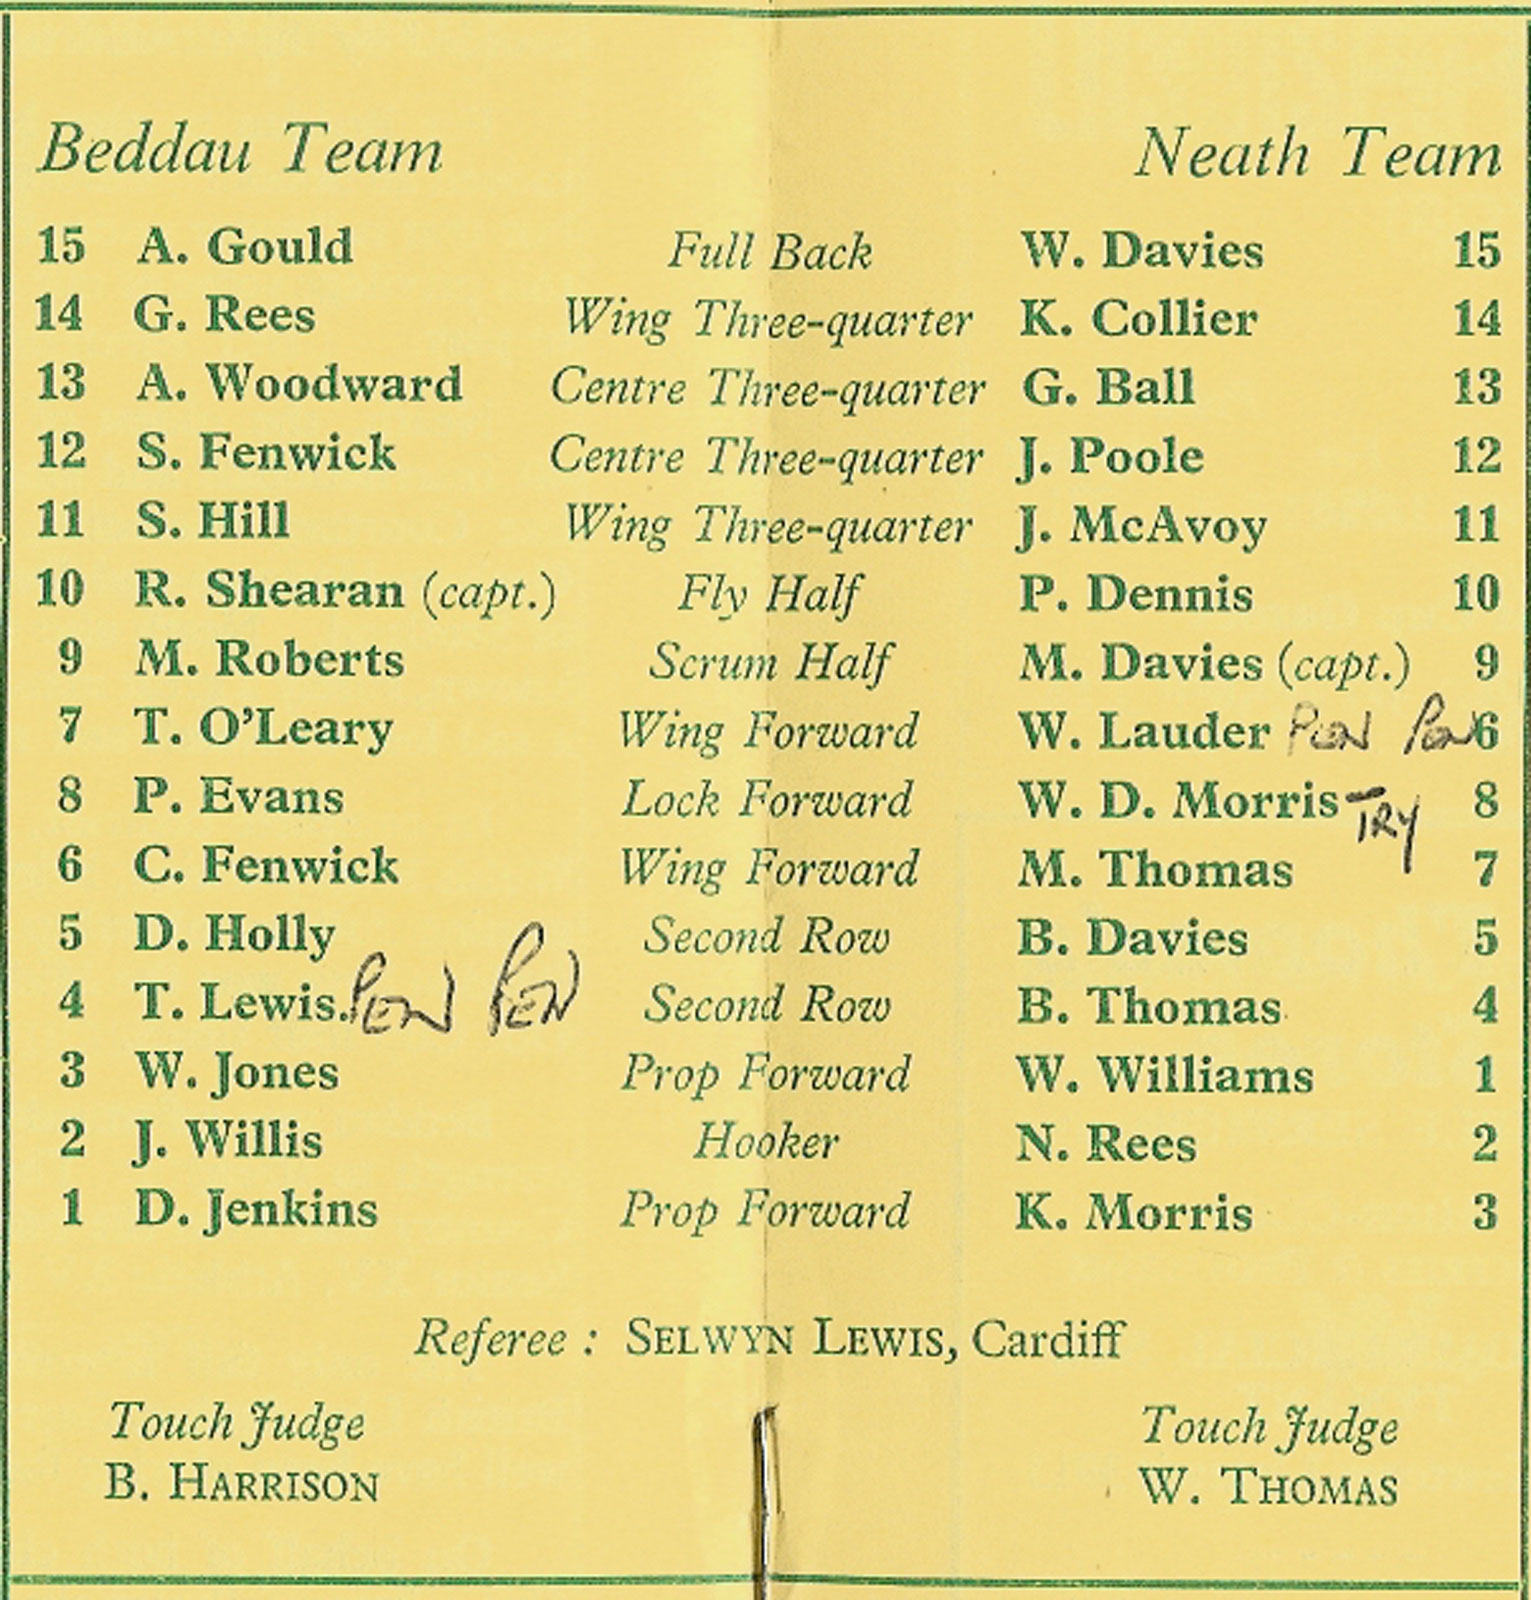 Beddau Team Neath Team
15 A. Gould Full Back W. Davies 15
14 G. Rees Wing Three-quarter K. Collier 14
13 A. Woodward Centre Three-quarter G. Ball 13
12 S. Fenwick Centre Three-quarter J. Poole 12
11 S. Hill Wing Three-quarter J. McAvoy 11
10 R. Shearan (capt.) Fly Half P. Dennis 10
9 M. Roberts Scrum Half M. Davies (capt.) 9
7 T. O'Leary Wing Forward W. Lauder PEN PEN 6
8 P. Evans Lock Forward W. D. Morris - TRY 8
6 C. Fenwick Wing Forward M. Thomas 7
5 D. Holly Second Row B. Davies 5
4 T. Lewis. PEN PEN Second Row B. Thomas 4
3 W. Jones Prop Forward W. Williams 1
2 J. Willis Hooker N. Rees 2
1 D. Jenkins Prop Forward K. Morris 3
Referee : SELWYN LEWIS, Cardiff
Touch Judge Touch Judge
B. HARRISON W. THOMAS